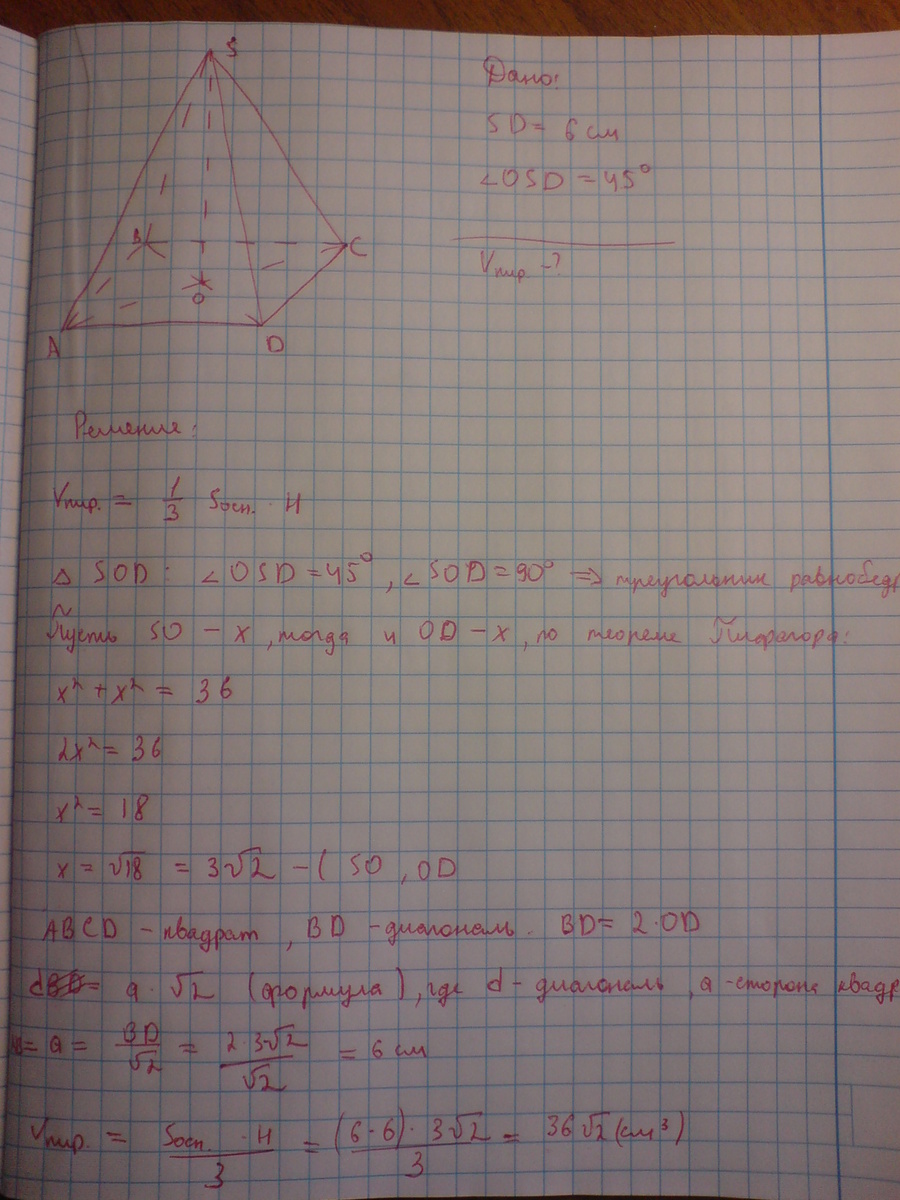 S
Дано:
SD = 6 см
∠OSD = 45°
B
C
Vпир. - ?
O
A
D
Решение:
Vпир. = 1/3 Sосн. · H
△ SOD: ∠OSD = 45°, ∠SOD = 90° => треугольник равнобедр
Пусть SO - x, тогда и OD - x, по теореме Пифагора:
x² + x² = 36
2x² = 36
x² = 18
x = √18 = 3√2 - ( SO, OD
ABCD - квадрат, BD - диагональ. BD = 2·OD
d = a · √2 (формула), где d - диагональ, a - сторона квадр
= a = BD/√2 = 2·3√2/√2 = 6 см
Vпир. = Sосн. · H/3 = (6·6) · 3√2/3 = 36√2 (см³)